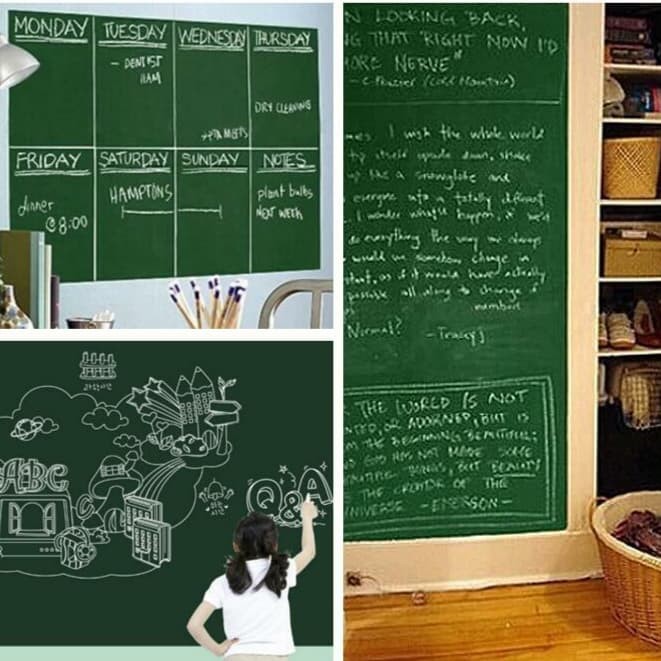 MONDAY
TUESDAY
WEDNESDAY
THURSDAY
- DENTIST
11AM
DRY CLEANING
FRIDAY
SATURDAY
SUNDAY
NOTES
dinner
@ 8:00
HAMPTONS
plant bulbs
NEXT WEEK
N LOOKING BACK,
G THAT RIGHT NOW I'D
ORE NERVE"
(Cold Mountain)
I wish the whole world
itself upside down, shake
like a snowglobe and
everyone into a totally different
I wonder what'd happen, if we'd
do everything the way we always
would we somehow change in
as if it would have actually
possible all along to change
Normal? - Tracy J
THE WORLD IS NOT
OR ADORNED, BUT IS
THE BEGINNING BEAUTIFUL;
GOD HAS NOT MADE SOME
THINGS, BUT BEAUTY
THE CREATOR OF THE
UNIVERSE - EMERSON -
ABC
Q&A